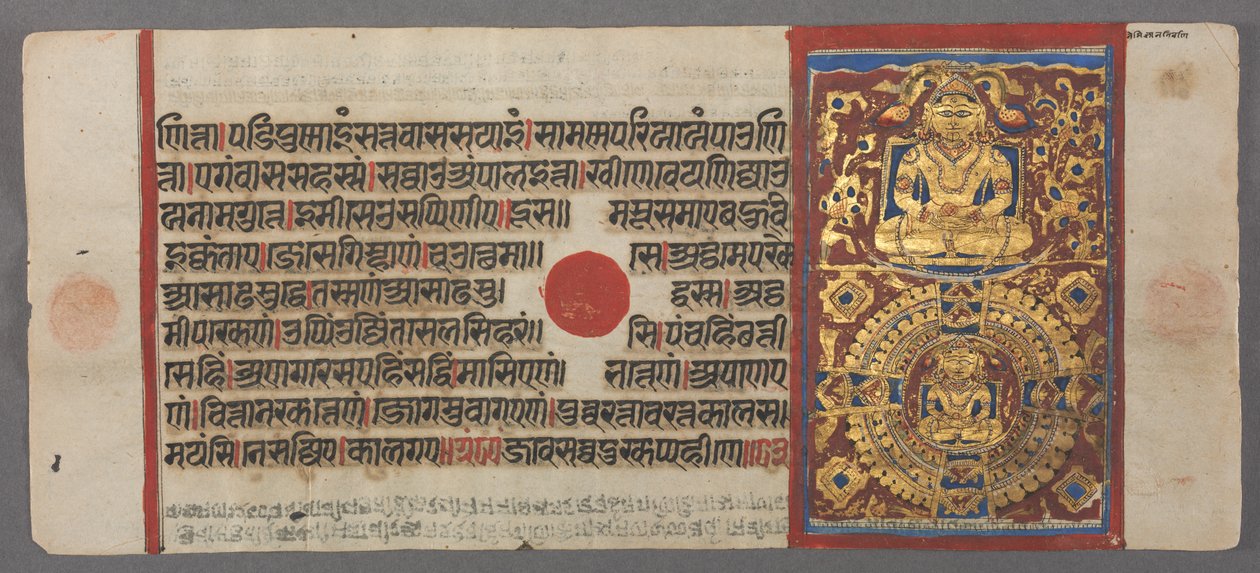 णित्ता। पडिपुन्नाइं सत्तवाससयाइं। सामन्नपरियागं पाउणि
त्ता। एगं वाससहस्सं। सव्वाउअं पालइत्ता। खीणे वेयणिज्जाउ
यनामगुत्ते। इमीसे उसप्पिणीए॥ दूस॥ मसुसमाए बहुवि
इक्कंताए। जे से गिम्हाणं। चउत्थे मा॥ से। अट्ठमे पक्खे
आसाढसुद्धे। तस्स णं आसाढसु। द्धस्स। अट्ठ
मीपक्खेणं। उप्पिं उज्जिंतसेलसिहरं॥ सि। पंचहिं छत्ती
सेहिं। अणगारसएहिं सद्धिं। मासिएणं। भत्तेणं। अपाणए
णं। चित्तानक्खत्तेणं। जोगमुवागएणं। पुव्वरत्तावरत्तकालस।
मयंसि। नेसज्जिए। कालगए॥ जाव सव्वदुक्खप्पहीणे॥